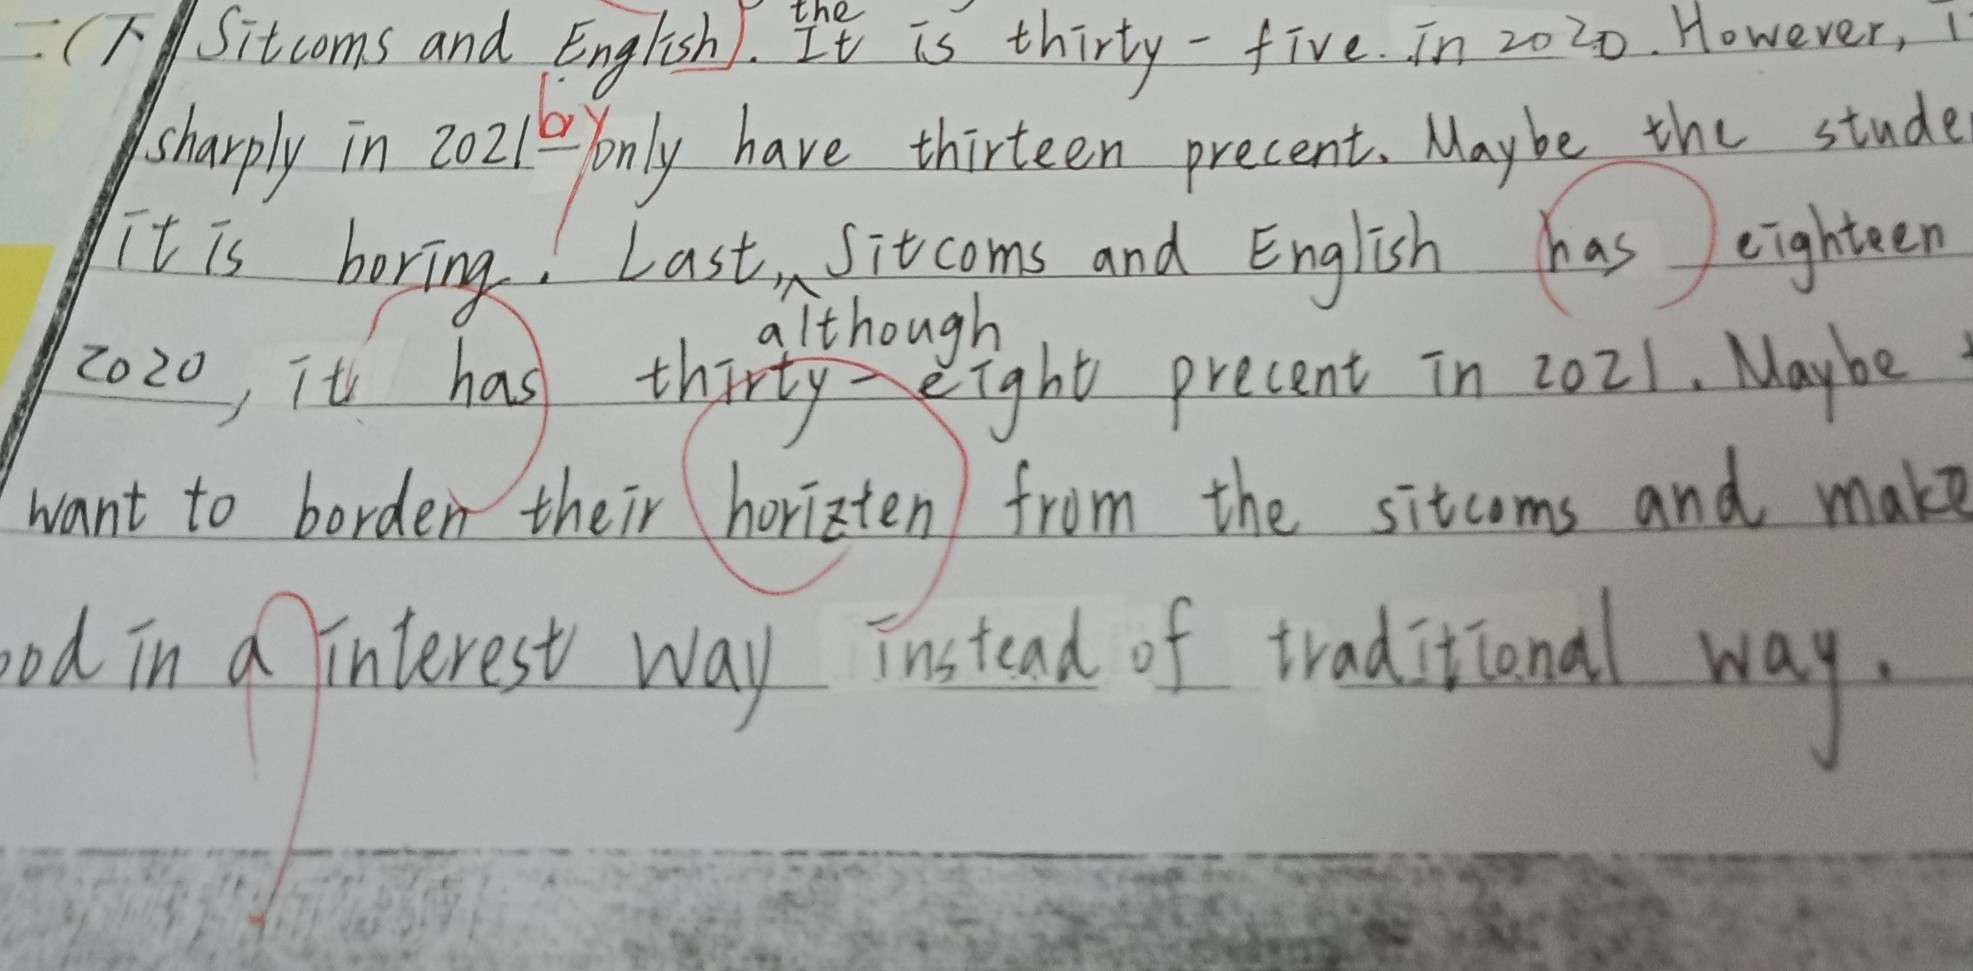 二(下 Sitcoms and English). the It is thirty-five. in 2020. However,
sharply in 2021 by only have thirteen precent. Maybe the stude
it is boring. Last, Sitcoms and English has eighteen
although
2020, it has thirty-eight precent in 2021. Maybe
want to borden their horizten from the sitcoms and make
ood in a interest way instead of traditional way.